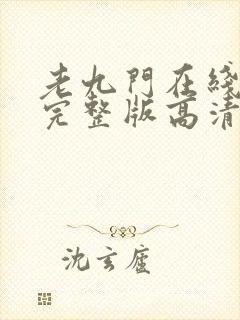 老九門在綫
完整版高清
沈玄廬